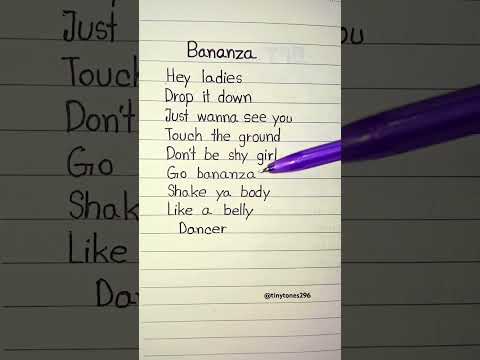 Bananza
Hey ladies
Drop it down
Just wanna see you
Touch the ground
Don't be shy girl
Go bananza
Shake ya body
Like a belly
Dancer
@tinytones296